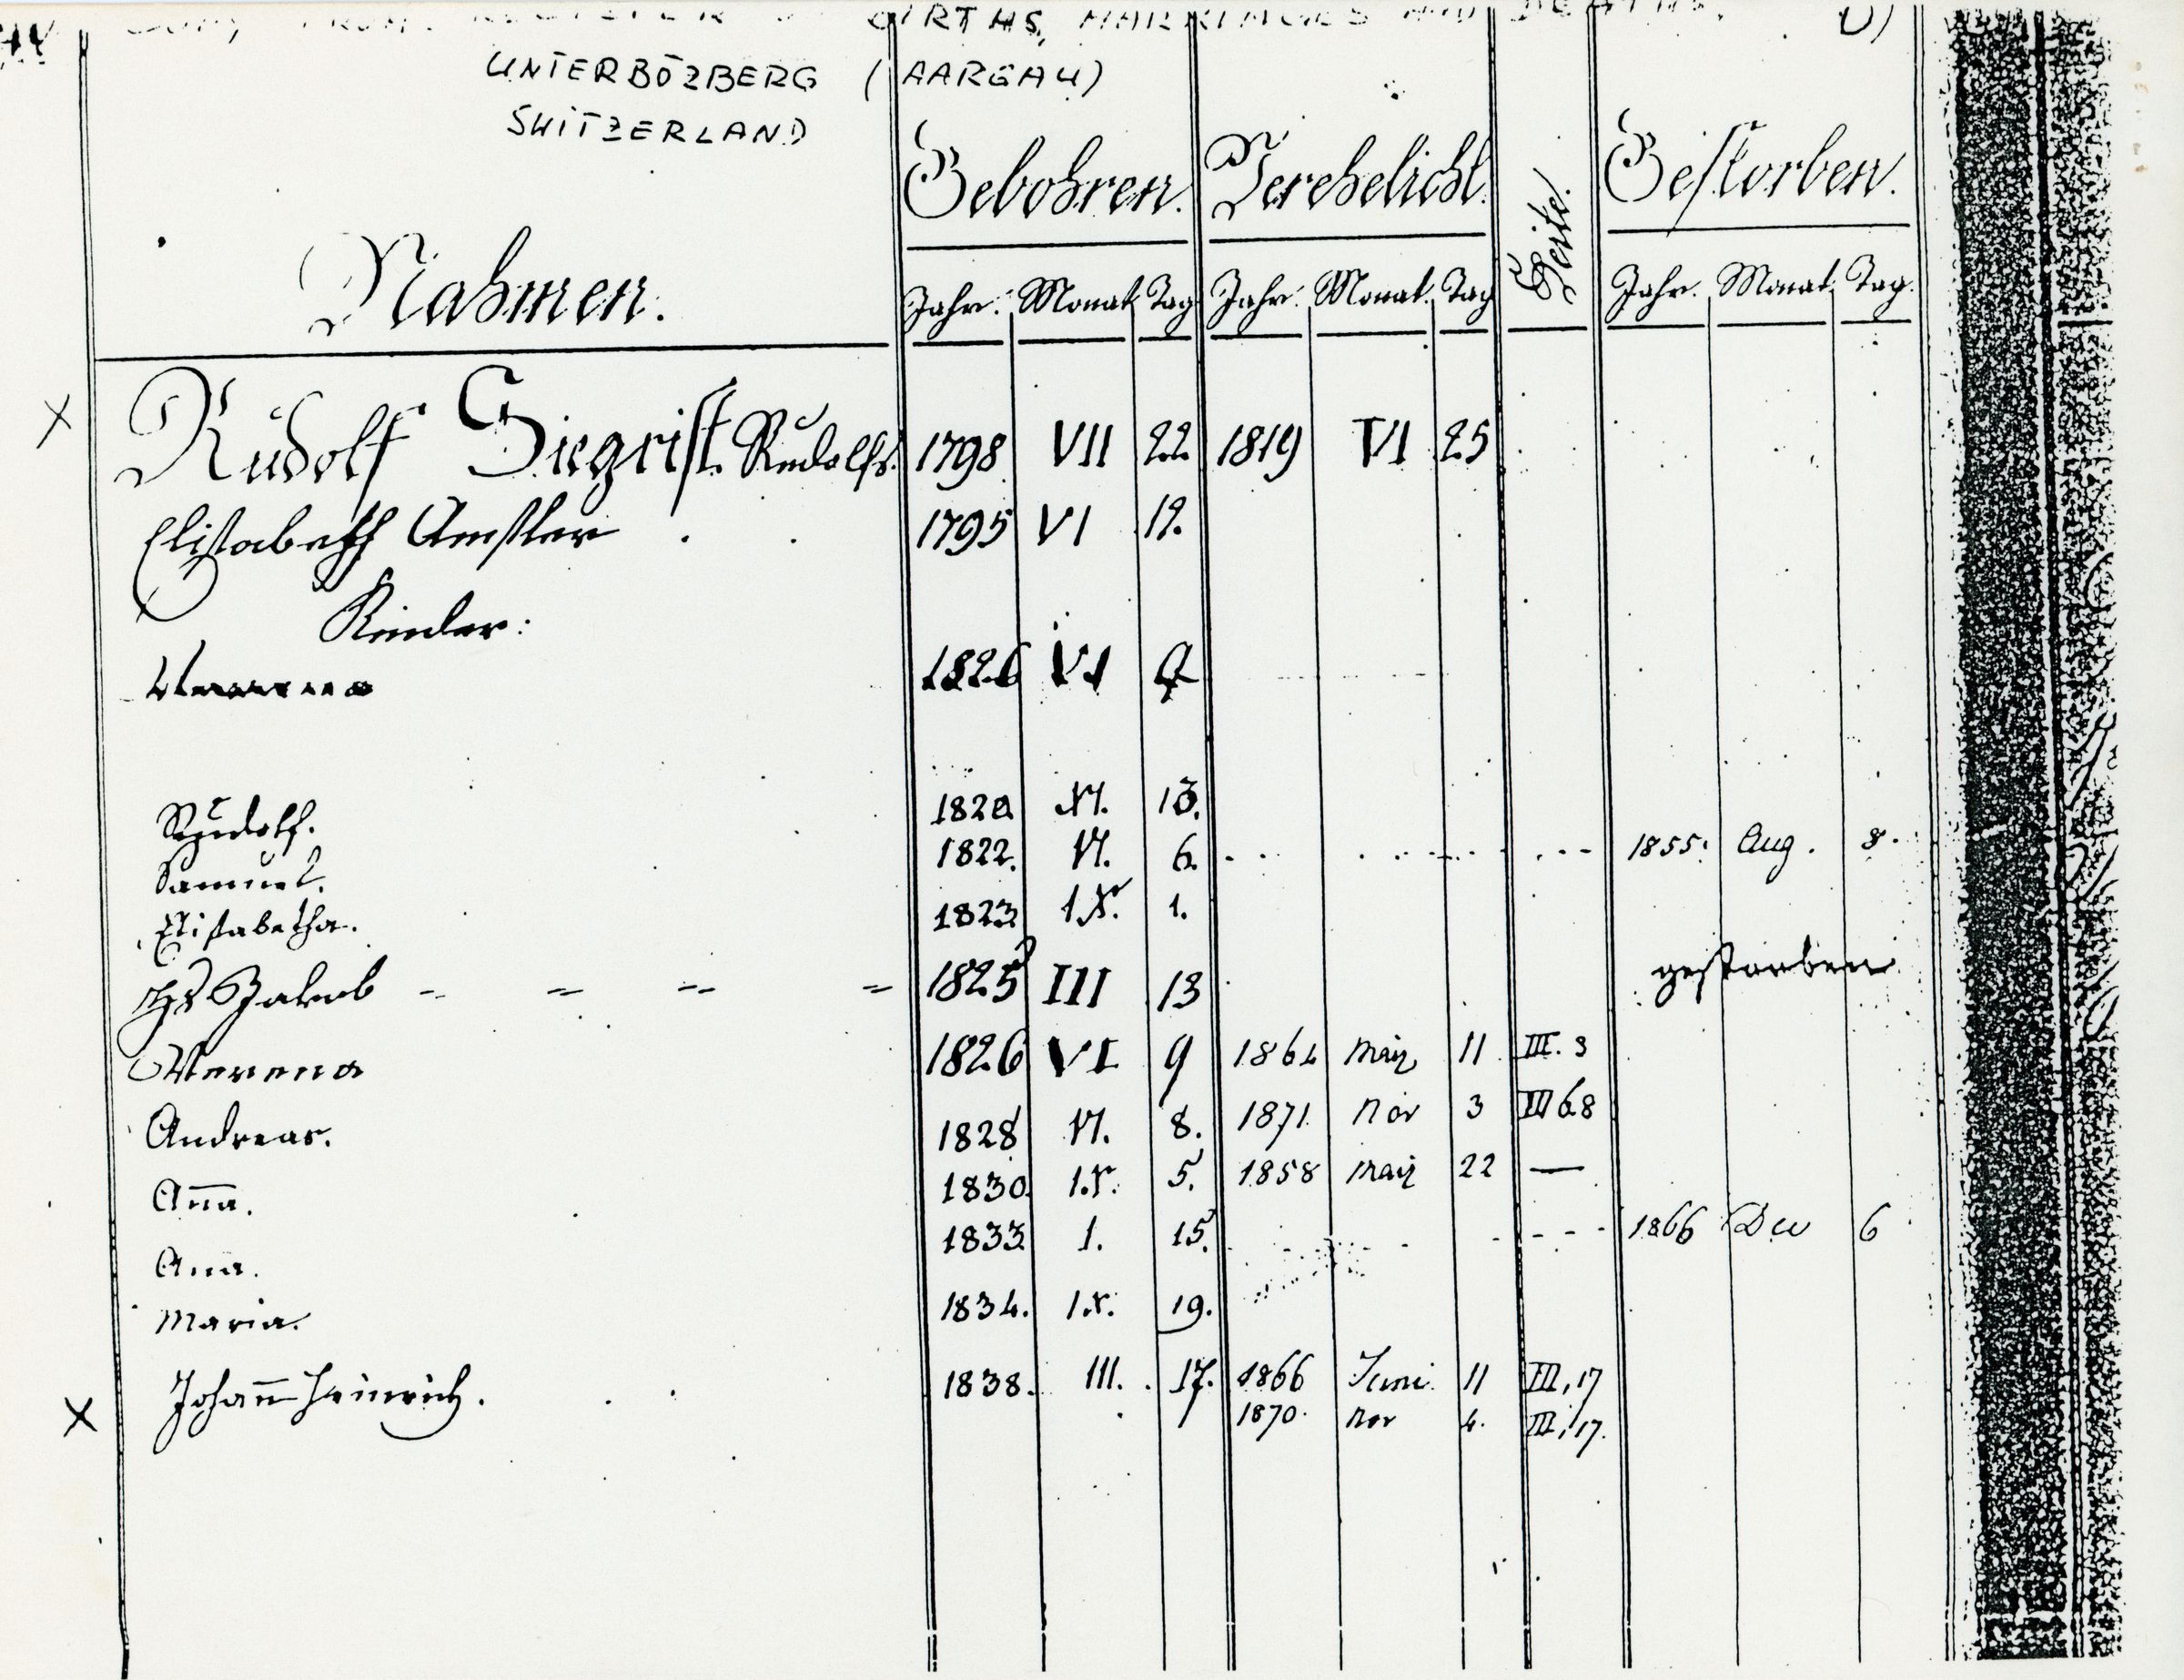 COPY FROM REGISTER OF BIRTHS, MARRIAGES AND DEATHS.
UNTERBÖZBERG (AARGAU)
SWITZERLAND
Nahmen. Gebohren. Verehelicht. Seite. Gestorben.
Jahr. Monat Tag Jahr. Monat. Tag Jahr. Monat. Tag.
X Rudolf Siegrist. Rudolfs. 1798 VII 22 1819 VI 25
Elisabeth Amsler 1795 VI 12.
Kinder:
Verena 1826 VI 9
Rudolf. 1820 XI. 13.
Samuel. 1822. VI. 6. 1855. Aug. 8.
Elisabetha. 1823 IX. 1.
Hs Jakob 1825 III 13 gestorben
Verena 1826 VI 9 1864 März 11 III. 3
Andreas. 1828 VI. 8. 1871. Nov 3 III 68
Aña. 1830. IX. 5. 1858 März 22 —
Ana. 1833. I. 15. 1866 Dec 6
Maria. 1834. IX. 19.
X Johañ Heinrich. 1838. III. 17. 1866 Juni. 11 III, 17
1870. Nov 4. III, 17.